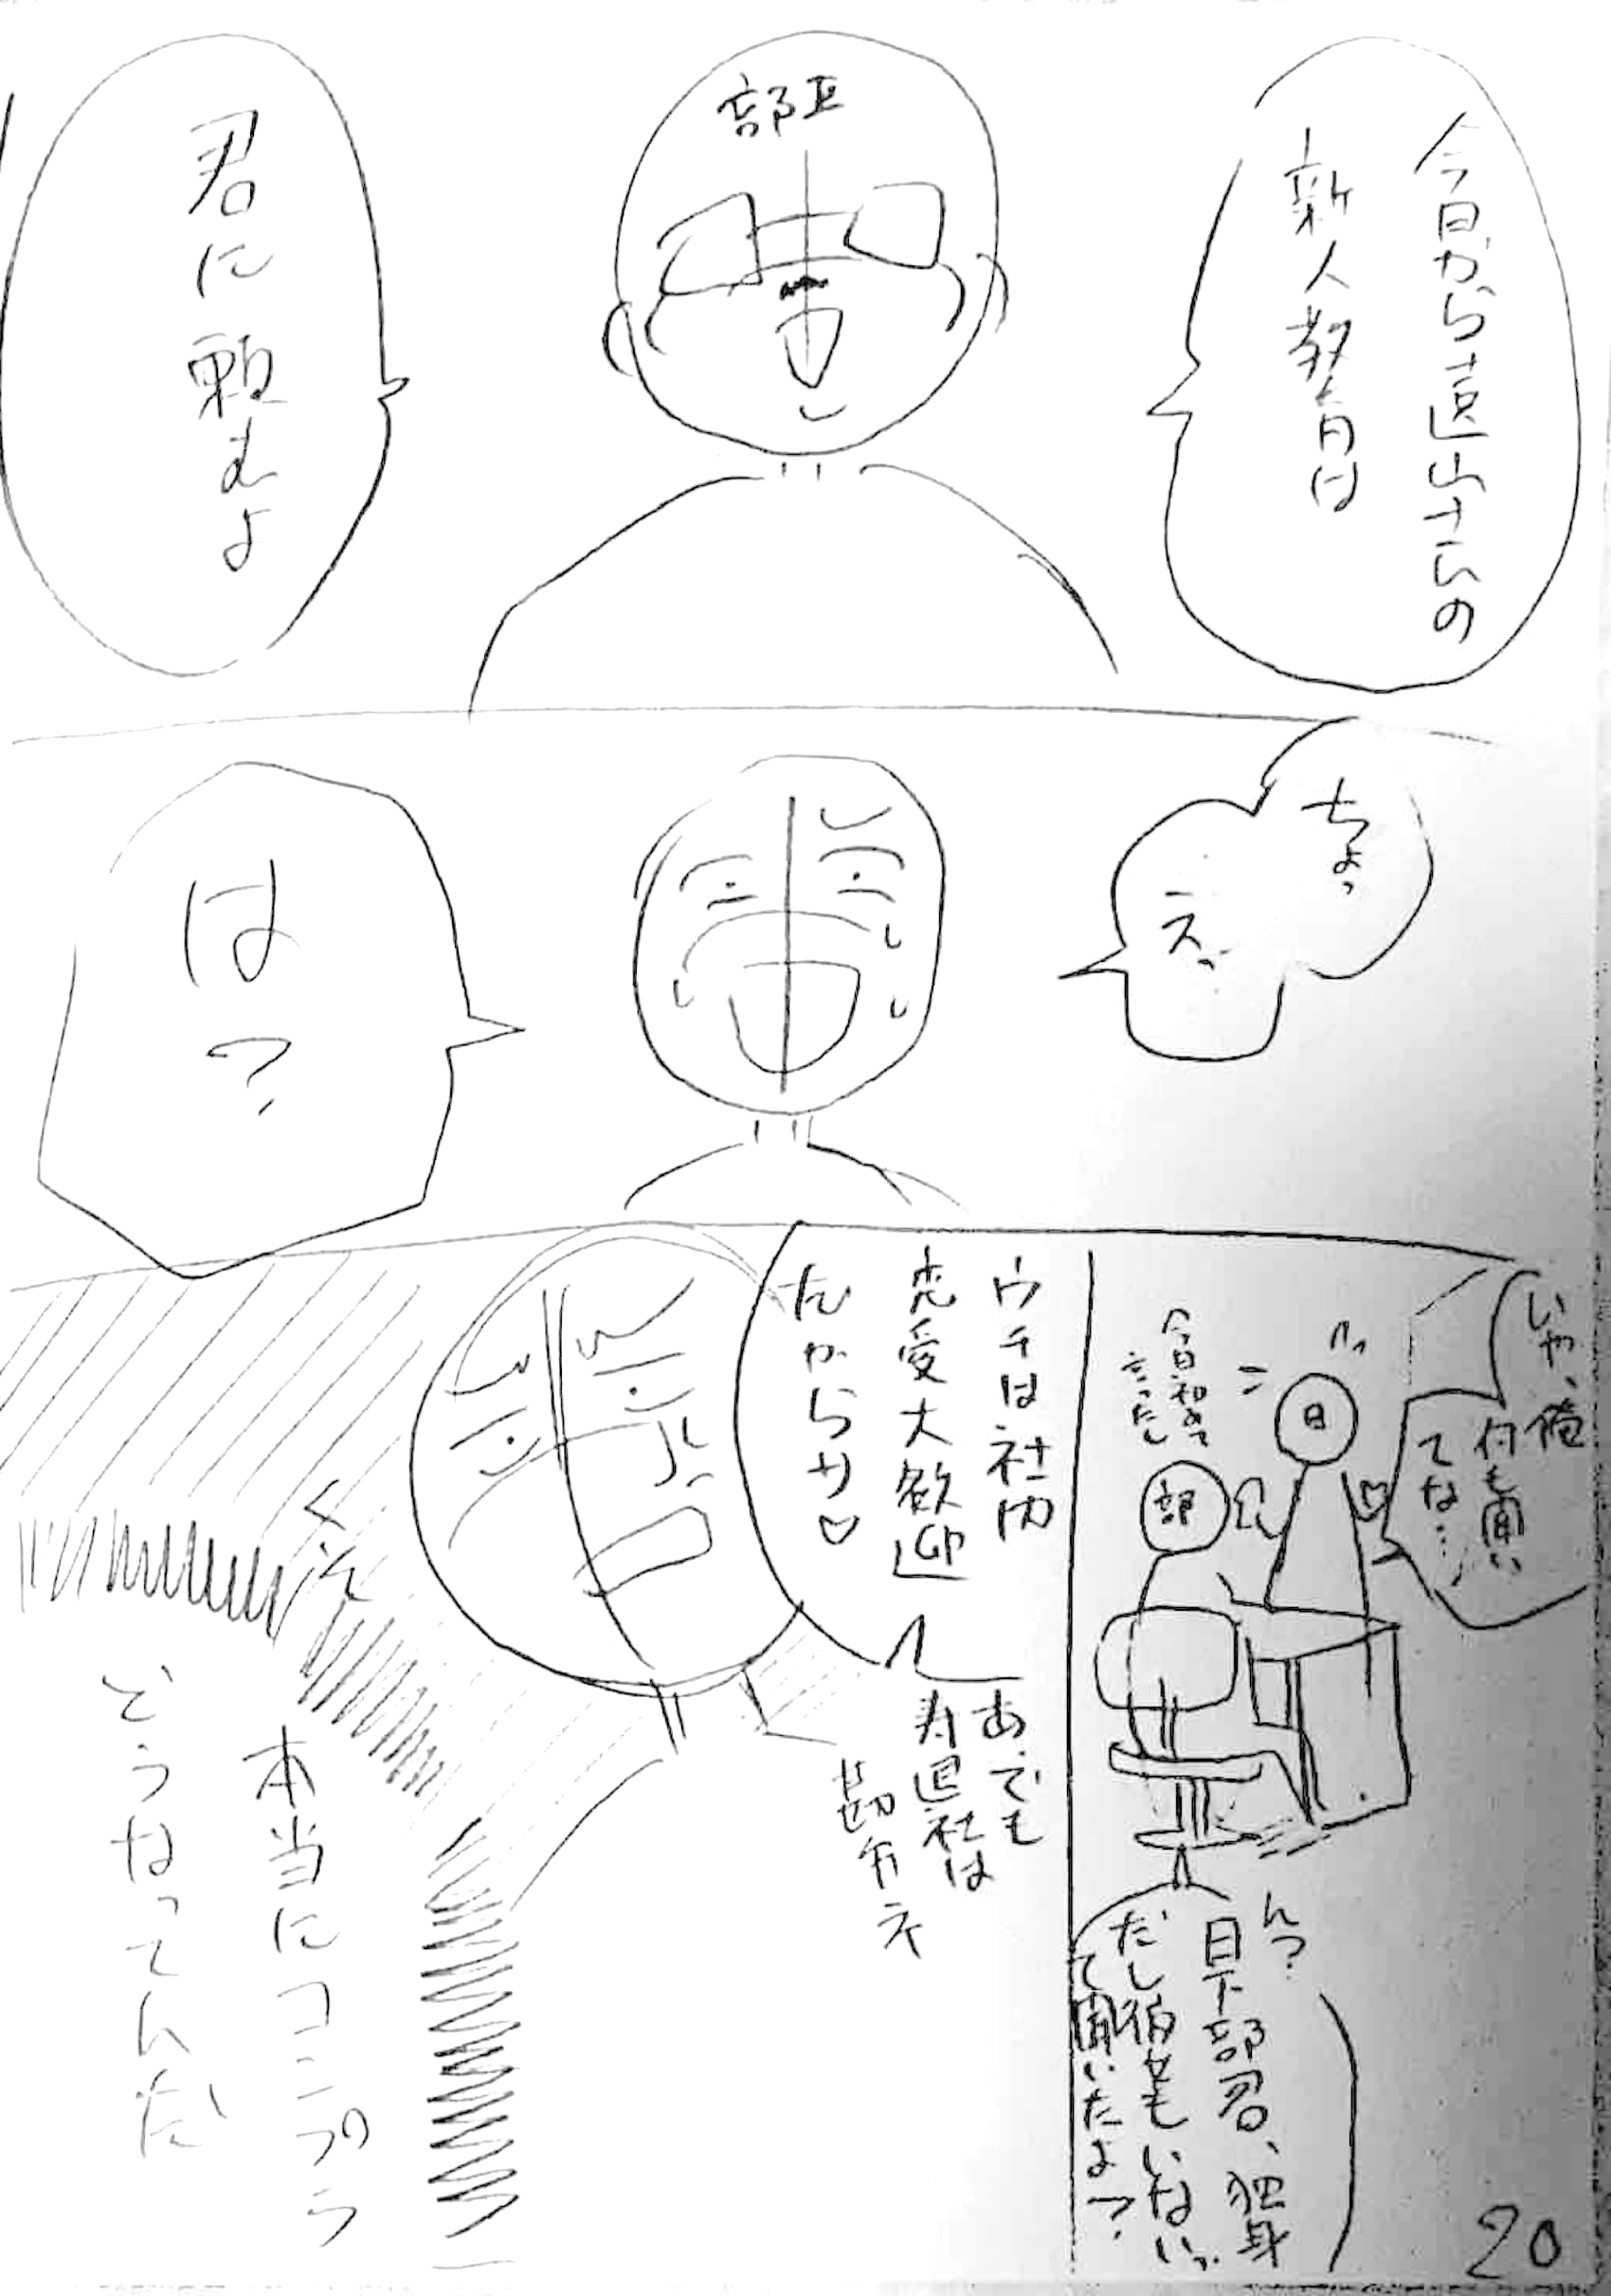 今日から遠山さんの
新人教育は
部長
君に頼むよ
ちょっ
えっ
は?
いや、俺
何も聞い
てな…
日
部
今日初めて
言ったし
んっ?
日下部君、独身
だし彼女もいないっ
て聞いたよー?
ウチは社内
恋愛大歓迎
だからサ♡
あ、でも
寿退社は
勘弁ネ
くそ
本当にコンプラ
どうなってんだ
20